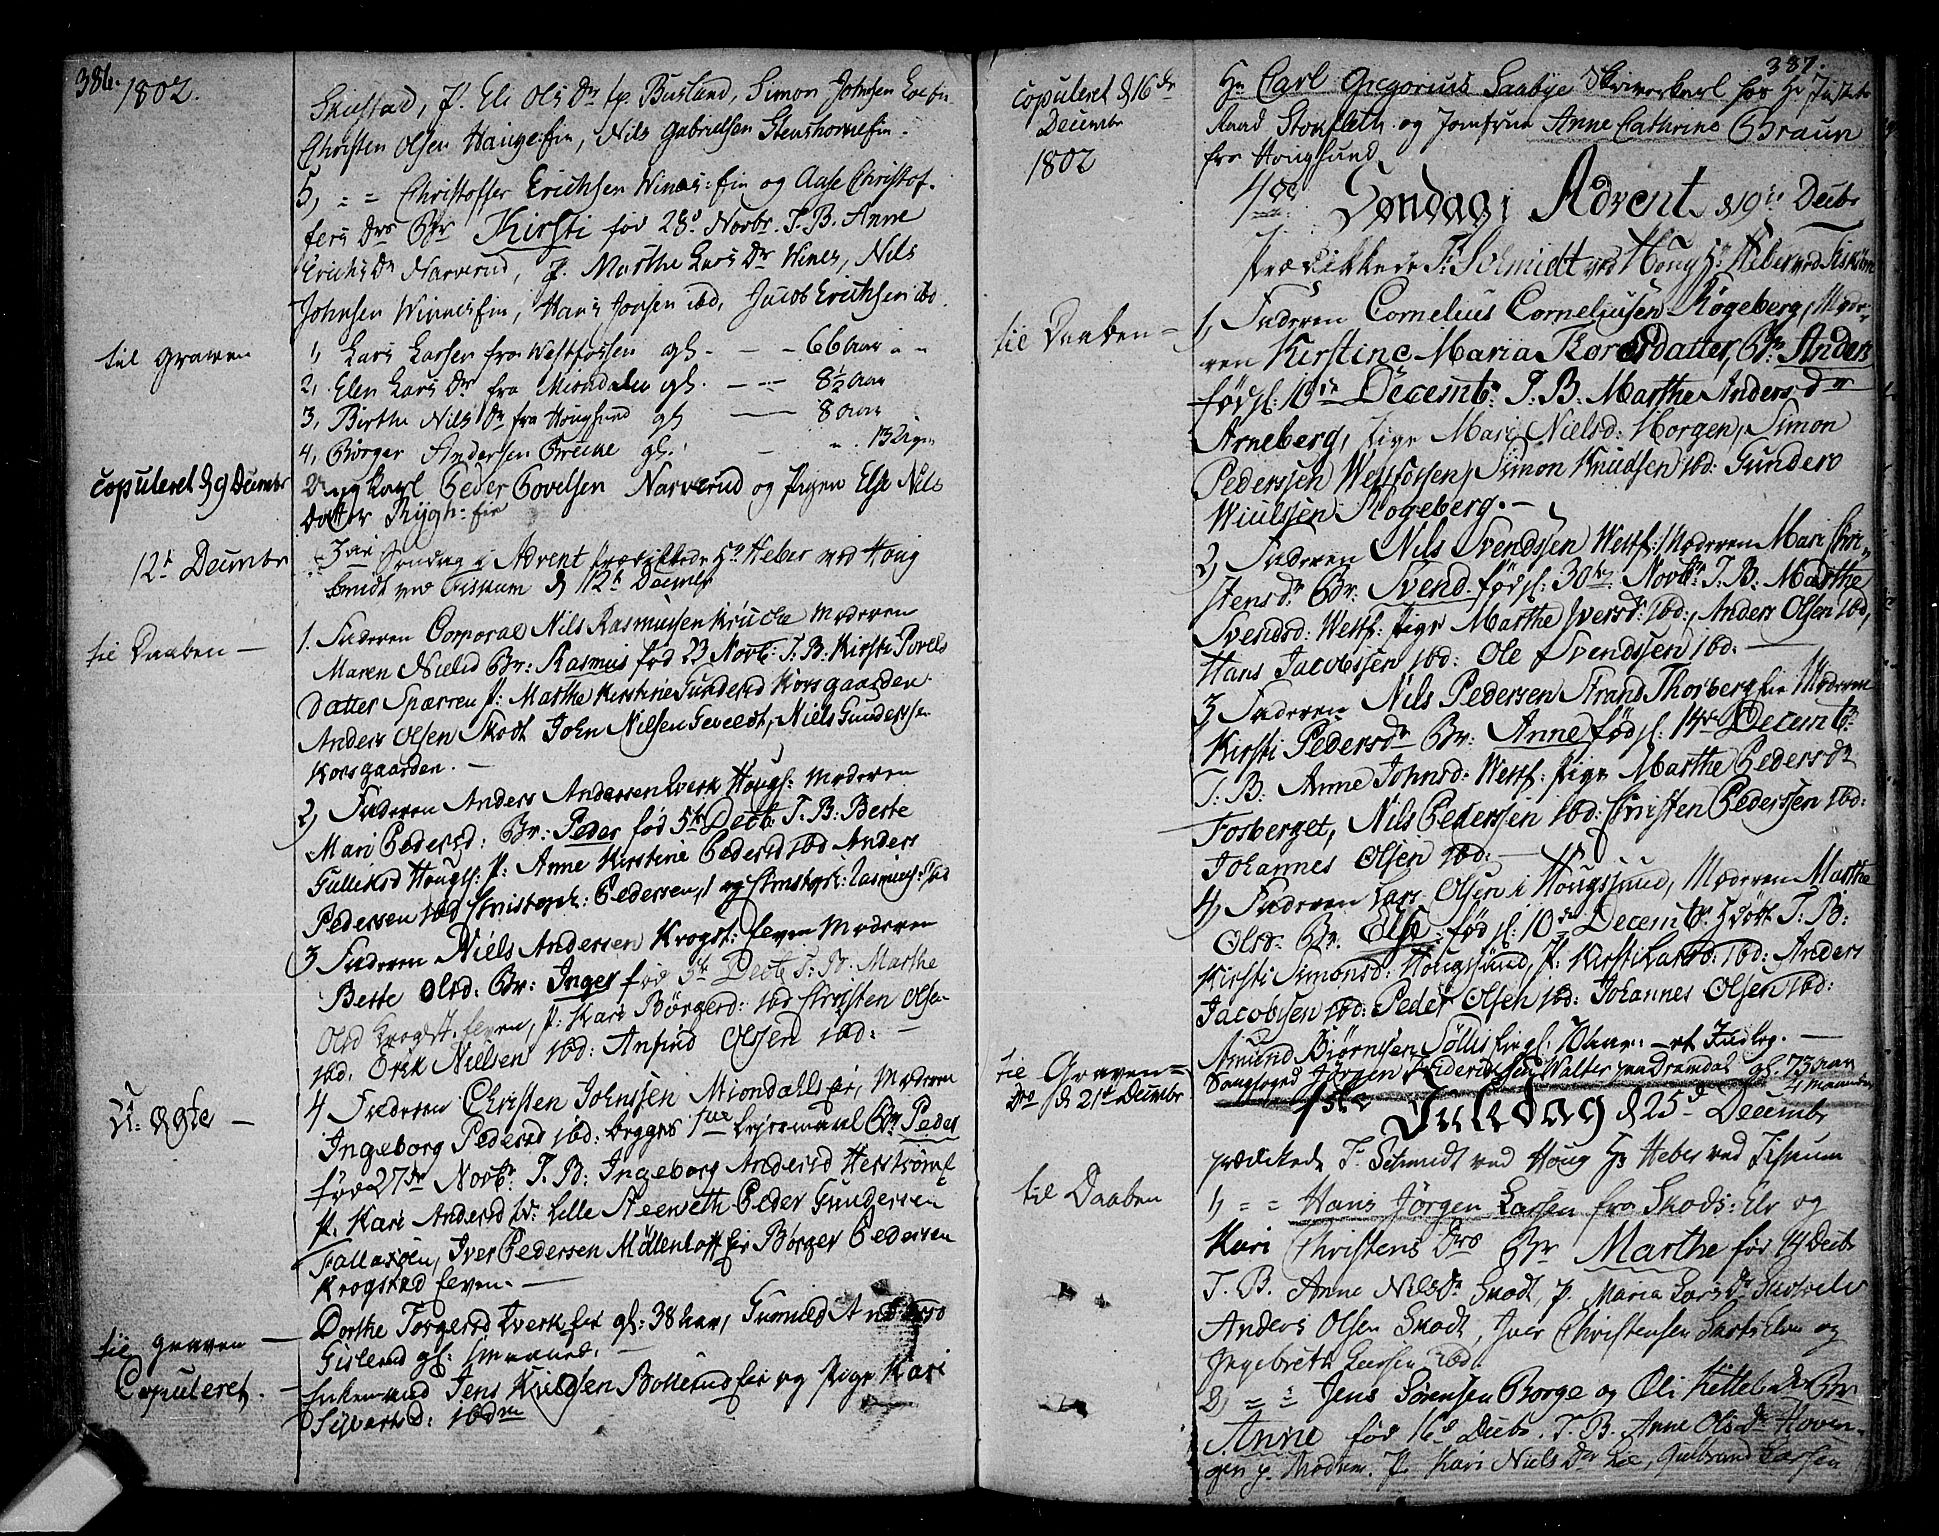 386.
1802.
Skiestad, P. Eli Ols Dr Busland, Simon Johnsen
Christen Olsen Hauge:Eie, Nils Gabrielsen
5, = = Christoffer Erichsen Wines:Eie og Aase Christof-
fers Dr Br Kirsti fød 28d Novbr. T. B. Anne
Erichs Dr Narverud, P. Marthe Lars Dr Wines, Nils
Johnsen Winnes Eie, Hans Jonsen ibd, Jacob Erichsen ibd.
til graven
1, Lars Larsen fra Westfossen gl. - - 66 aar - -
2, Elen Lars Dr fra Miøndalen gl. - - 8½ aar
3, Birthe Nils Dr fra Hougsund gl - 8 aar
4, Børger Andersen gl: - - 13 Ugr
copuleret d 9 Decembr
Ungkarl Peder Povelsen Narverud og Pigen Else Nils
Datter Rygh-Eie
12te Decembr
3die Søndag i Advent prædikkede Hr Heber ved Houg
Smidt ved Fiskum d 12te Decembr
til Daaben -
1. Faderen Corporal Nils Rasmussen Moderen
Maren Nielsd Br: Rasmus fød 23 Novb: T: B: Kirsti Povels
Datter Spærren P: Marthe Kirstine Gundersd Korsgaarden
Anders Olsen Skodt John Nielsen Teveldt, Niels Gundersen
Korsgaarden. -
2, Faderen Anders Andersen Hougs: Moderen
Mari Pedersd: Br: Peder fød 5te Decb: T: B: Berte
Hougs: P: Anne Kirstine Pedersd ibd Anders
Pedersen ibd Christoph: Pedersen, og
3 Faderen Niels Andersen Krogst: Eeven Moderen
Berte Olsd: Br: Inger fød 5te Decb T: B: Marthe
Olsd Krogst: Eeven, P: Kari Børgersd: ibd Christen Olsen
ibd: Erik Nielsen ibd: Anfind Olssen ibd: -
U: Ægte -
4 Faderen Christen Johnssen Miondalls Eie, Moderen
Ingeborg Pedersd ibd: begges 1ste Leiermaal Br Peder
fød 27de Novb: T. B: Ingeborg Andersd
P. Kari Andersd ibd: Lille Peder Gundersen
Iver Pedersen Møllenhoff Eie Børger Pedersen
Krogstad Eeven. -
til graven -
Dorthe Torgersd Eie gl: 38 aar, Gunnild
Copuleret. -
Enkemand Jens Knudsen Bollerud Eie og Pige Kari
Sivertsd: ibdm
387.
copuleret d 16de
Decembr
1802
Hr Carl Gregorius Saabye Skriverkarl hos Hr Justits
Raad Stockfleth og Jomfrue Anne Cathrine Braun
fra Hougsund
4de Søndag i Advent d 19de Decbr
Prædikkede Hr Schmidt ved Houg Hr Heber ved Fiskum
til Daaben -
1, Faderen Cornelius Corneliusen Røgeberg, Mode-
ren Kirstine Maria Torersdatter, Br: Anders
føds: 10de Decemb: T. B. Marthe Anders Dr
Arneberg, Pige Mari Nielsd: Horgen, Simon
Pederssen Westfossen, Simon Knudsen ibd: Gunder
Røgeberg. -
2, Faderen Nils Svendssen Westf: Moderen Mari Chri-
stensd: Br: Svend føds: 30te Novb: T: B: Marthe
Svendsd: Westf: Pige Marthe Iversd: ibd: Anders Olsen ibd,
Hans Jacobssen ibd: Ole Svendssen ibd: -
3, Faderen Nils Pedersen Strand Thorberg Eie Moderen
Kirsti Pedersdr Br: Anne føds: 14de Decemb:
T: B: Anne Johnsd: Westf: Pige Marthe Pedersdr
Fosberget, Nils Pederssen ibd: Christen Pederssen ibd:
Johannes Olsen ibd: -
4, Faderen Lars Olsen i Hougssund, Moderen Marthe
Olsd: Br. Else føds: 10de Decemb: døbt T: B:
Kirsti Simonsd: Hougssund, P: Kirsti Larsd: ibd: Anders
Jacobsen ibd: Peder Olsen ibd: Johannes Olsen ibd:
til Graven -
Amund Biørnsen Sollis Eie gl: 70 aar -
d 21de Decembr
Jørgen Friderichsen Walter fra Dramdal gl: 73 aar
4 maaneder
1ste Juledag d 25de Decembr
prædikede Hr Schmidt ved Houg Hr Heber ved Fiskum
til Daaben
1, = = Hans Jørgen Larsen fra Skods:Elv og
Kari Christens Dr Br Marthe fød 14 Decbr
T. B. Anne Nils Dr Skodt, P. Maria Lars Dr Skotselv
Anders Olsen Skodt, Iver Christensen og
Ingebreth Larsen ibd.
2, = = Jens Sørensen Borge og Eli Kittels Dr Br
Anne fød 16d Decbr. T. B. Anne Ols Dr Hoven-
gen p. Modum. P. Kari Niels Dr Lie, Gulbrand Larsen